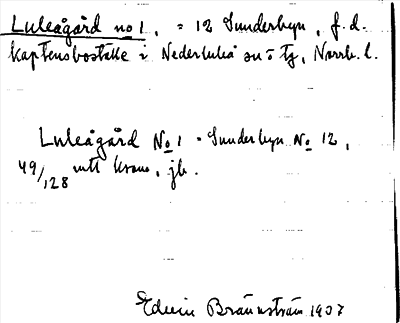 Luleågård no 1, = 12 Sunderbyn, f.d.
kaptensboställe i Nederluleå sn o tg, Norrb. l.
Luleågård No 1 = Sunderbyn No 12,
49/128 mtl krono, jb.
Edvin Brännström 1937